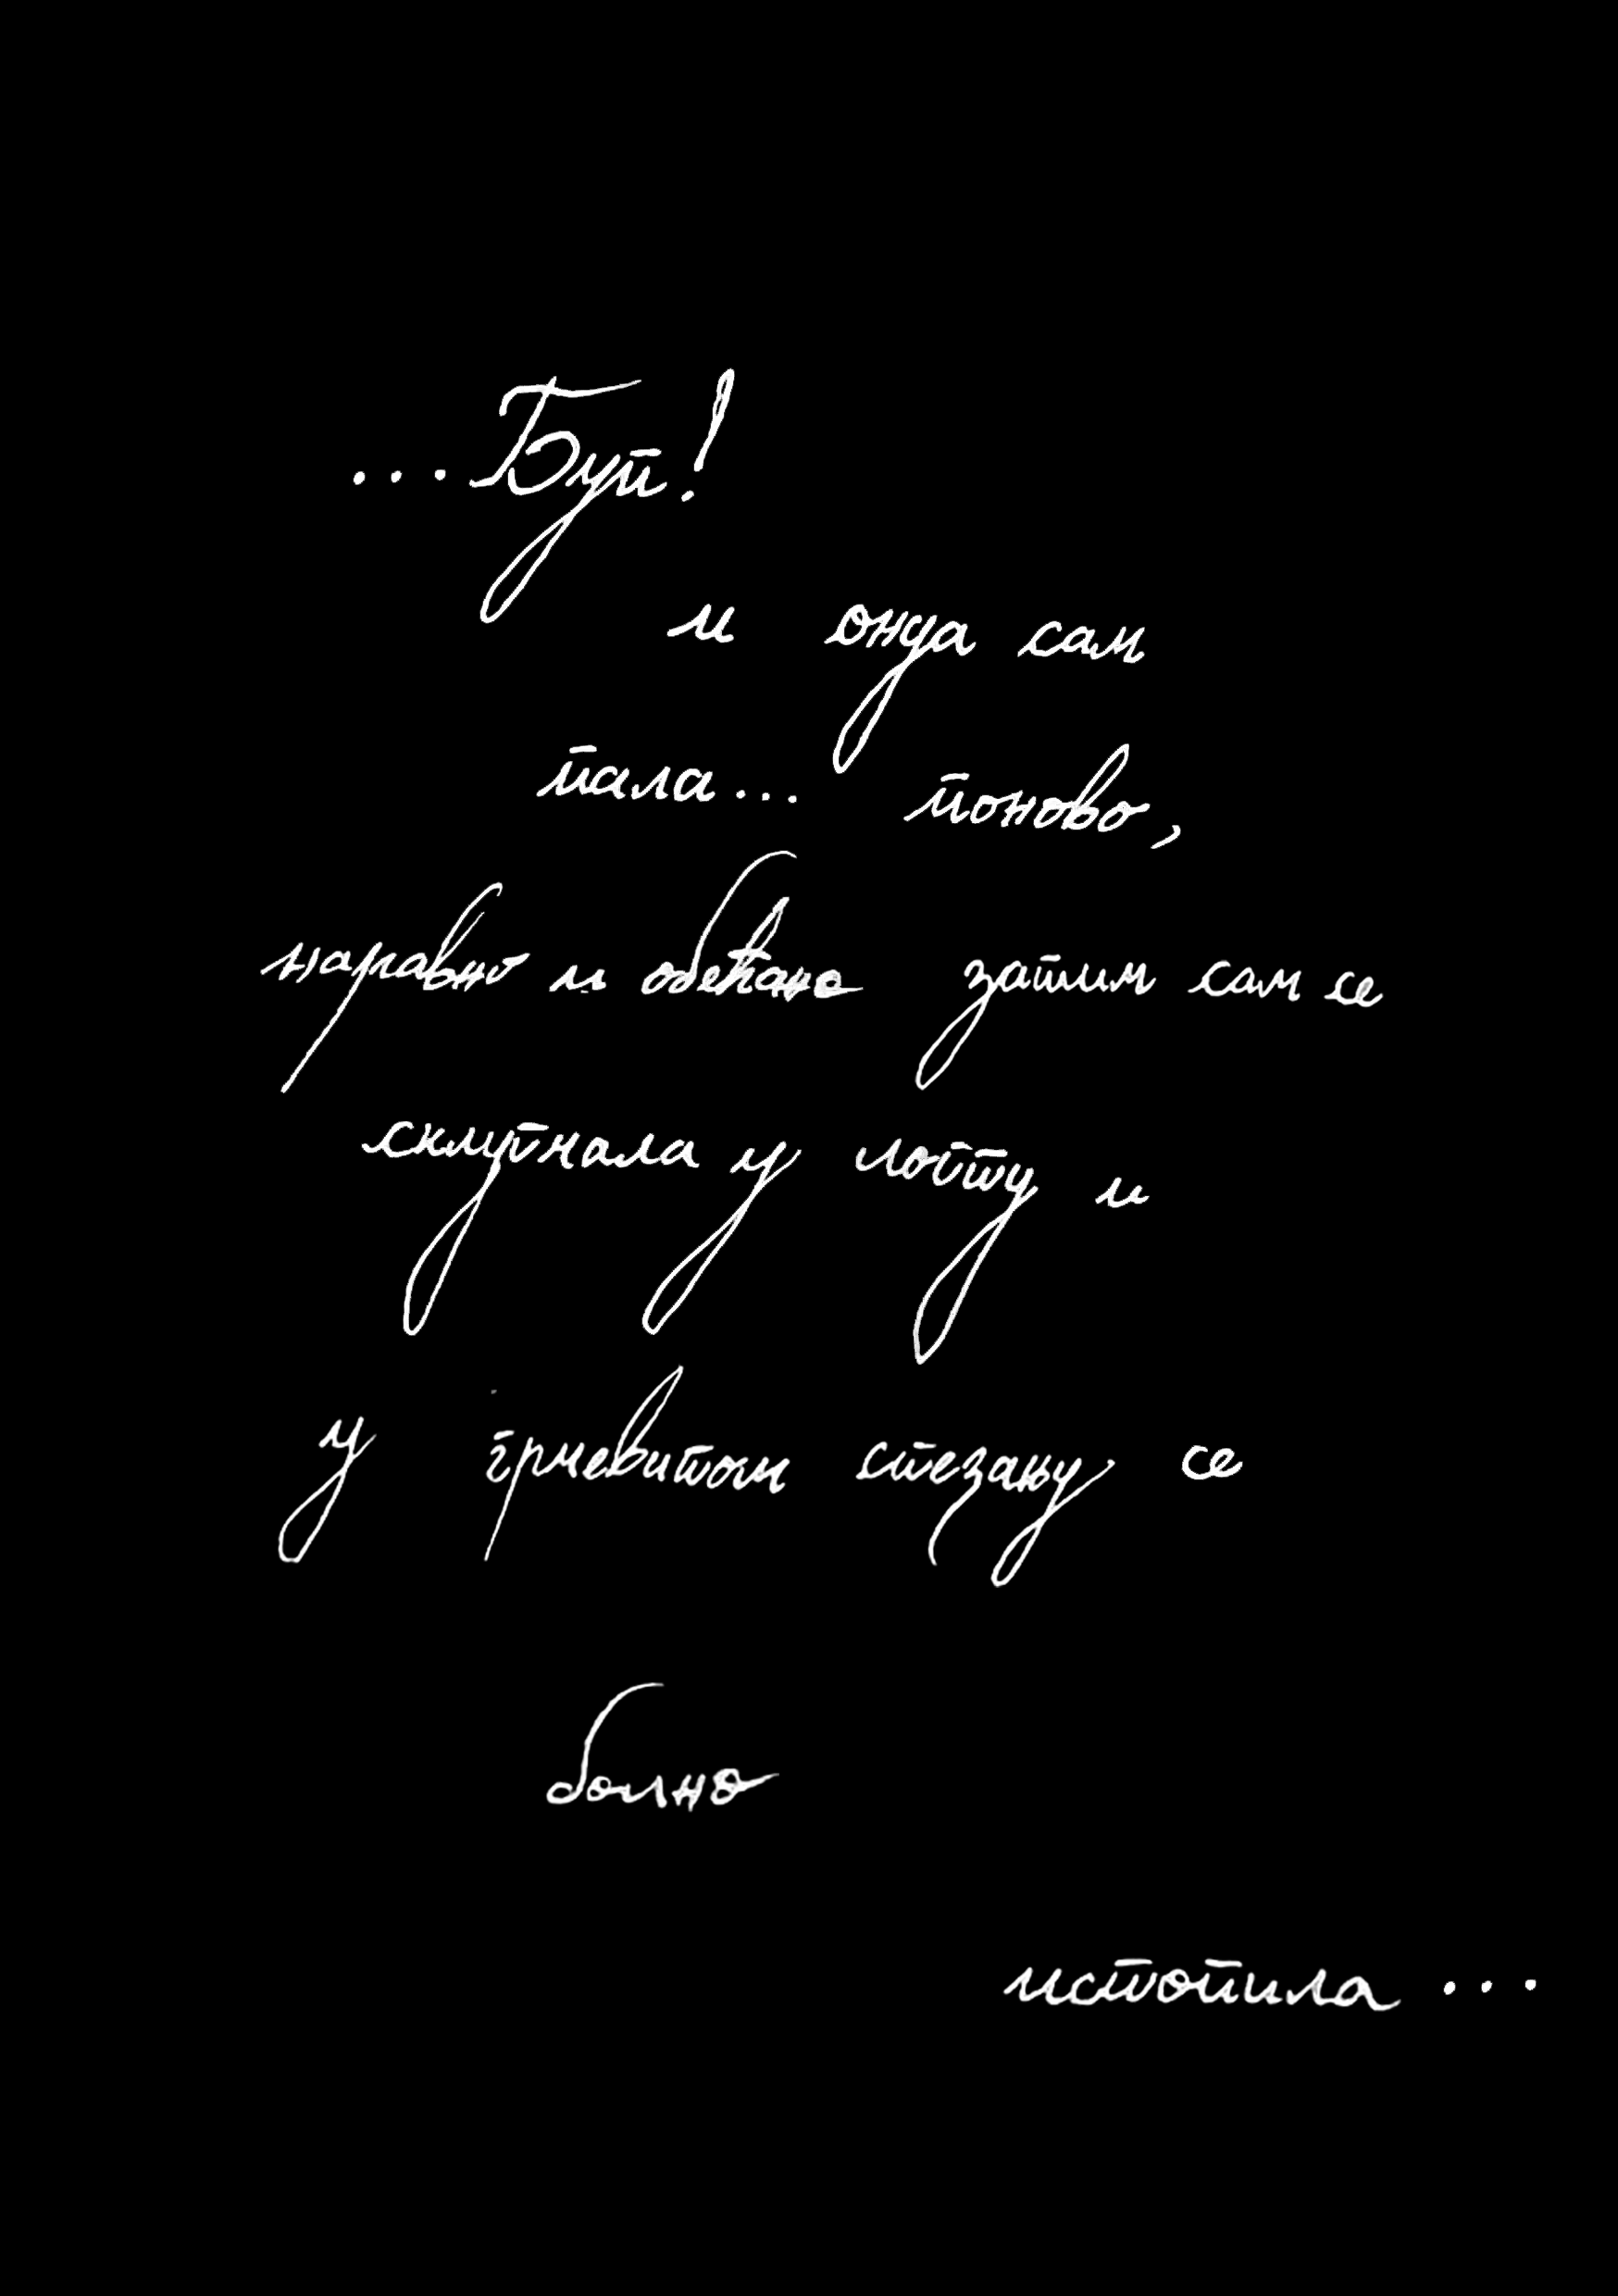 ...Буп!
и онда сам
пала... поново,
наравно и обећано затим сам се
склупчала у лопту и
у грчевитом стезању се
болно
истопила...